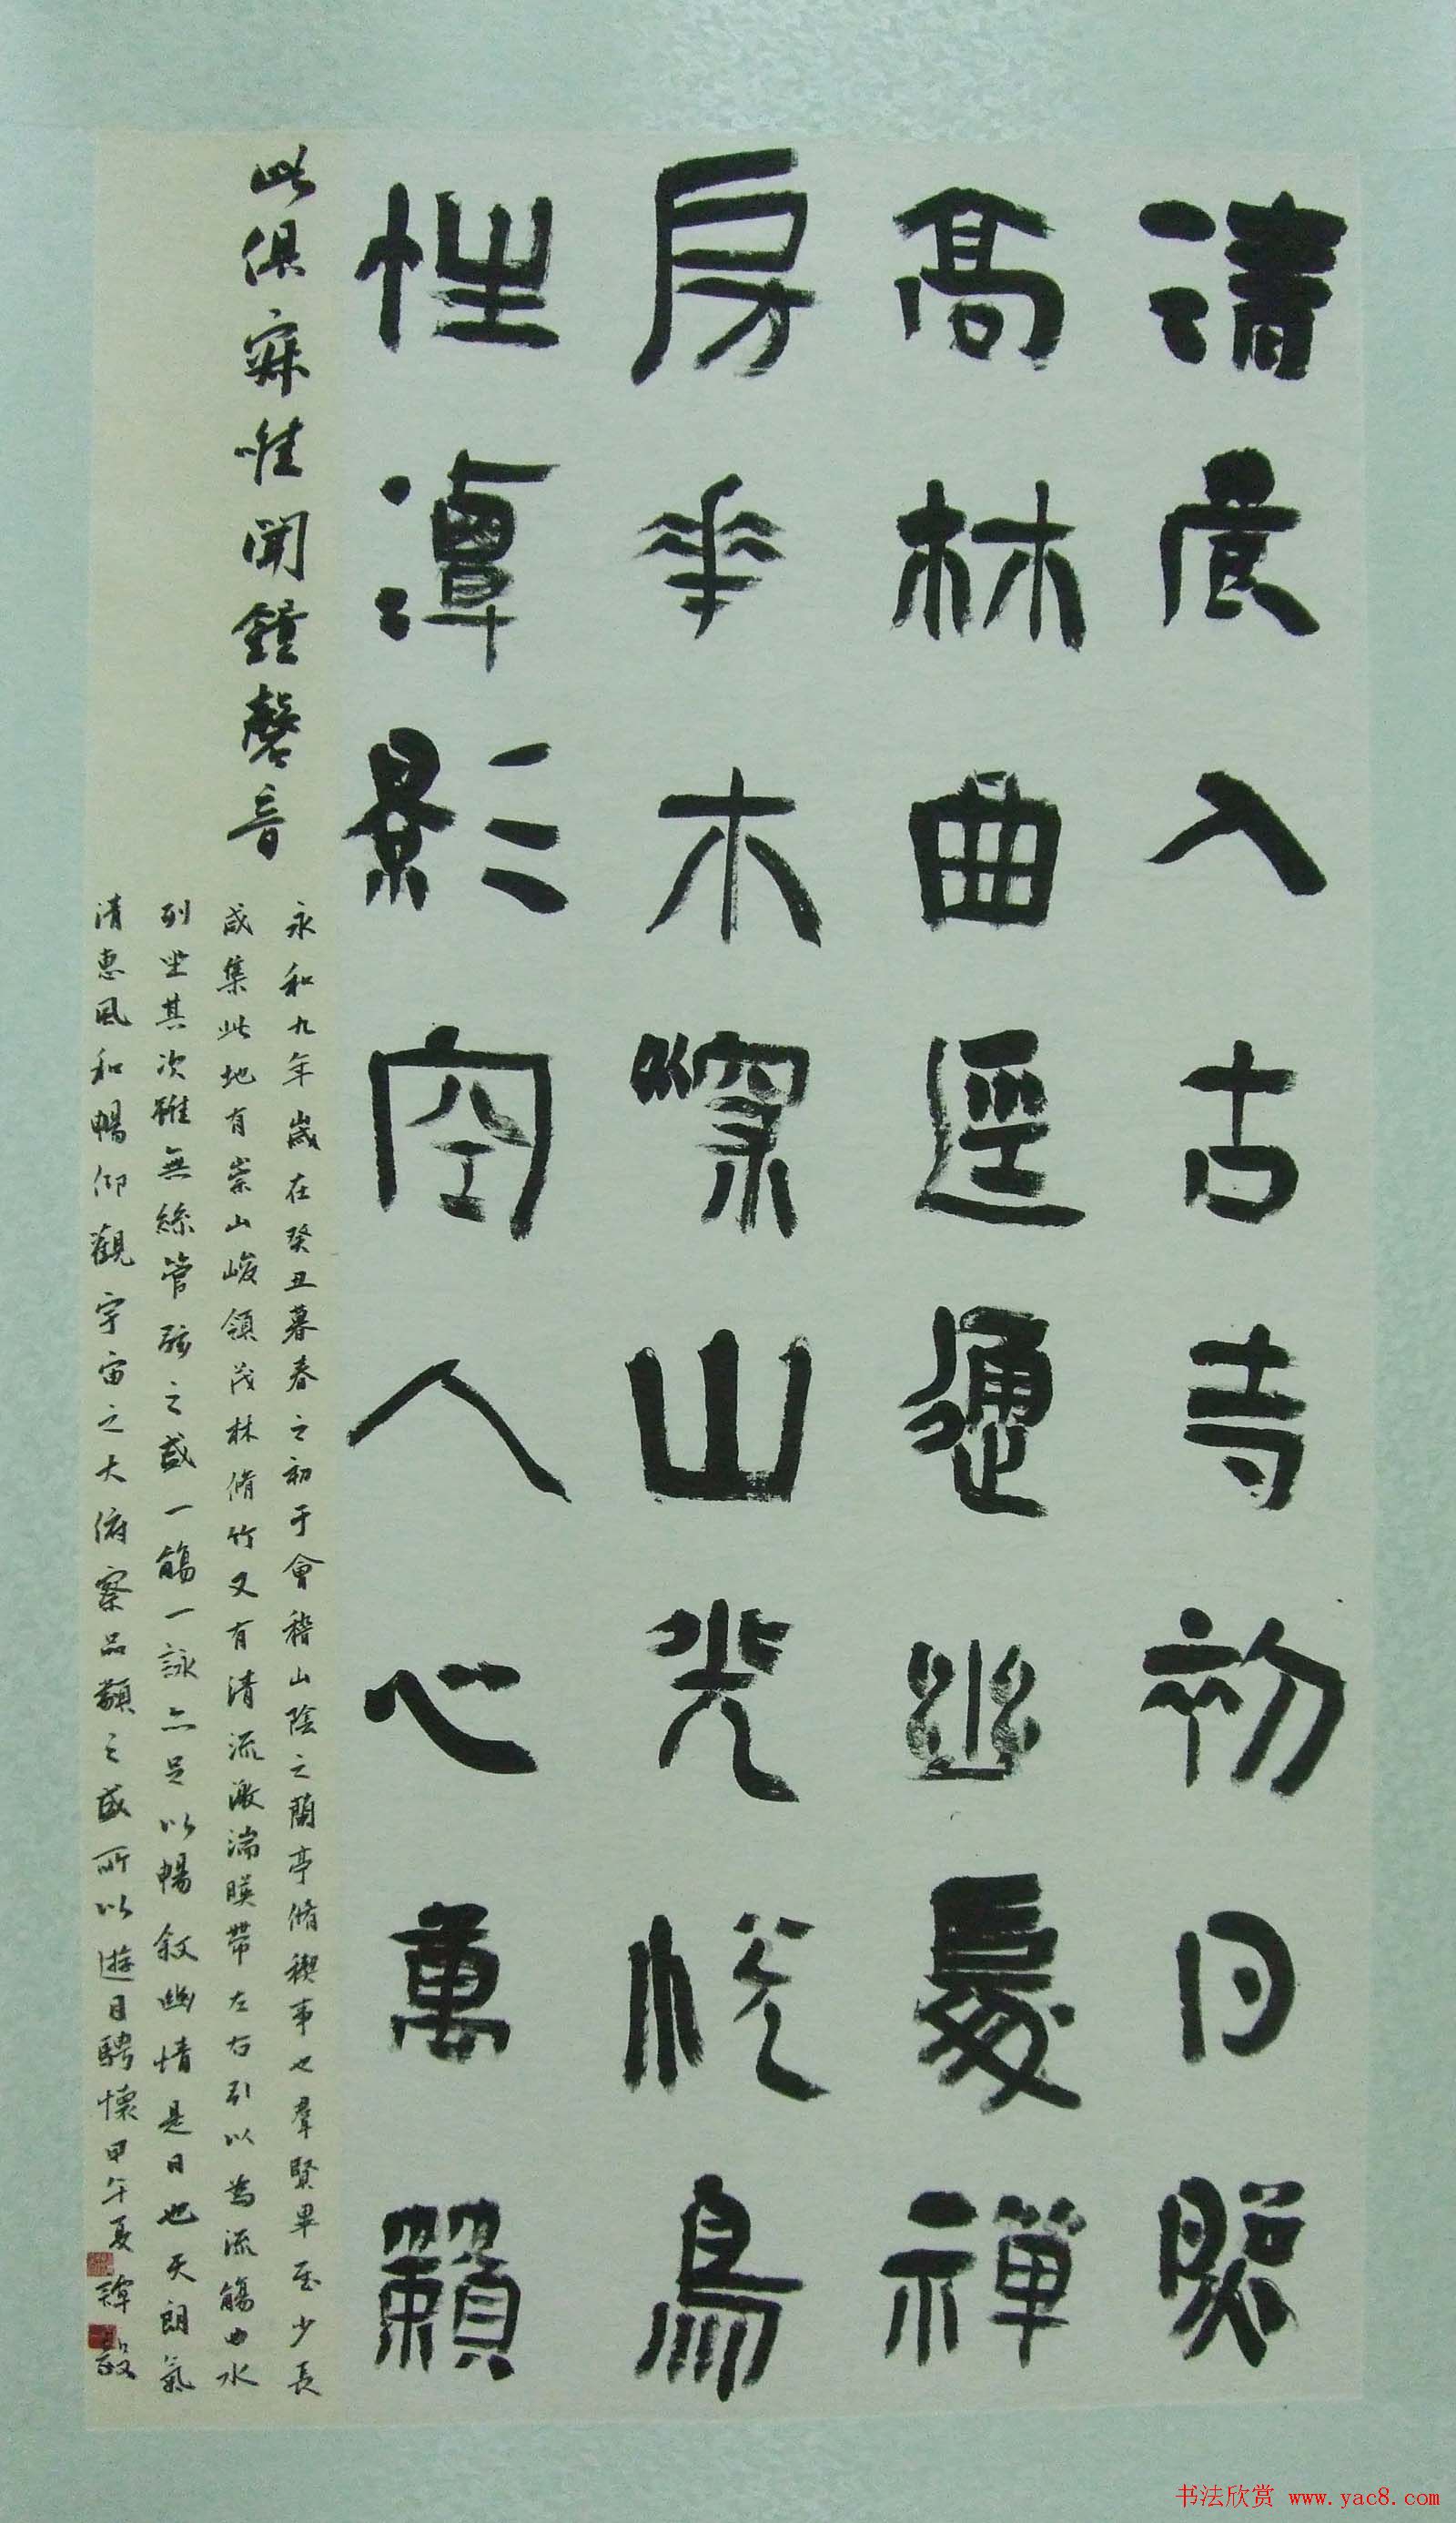 清晨入古寺初日照
高林曲逕通幽處禪
房花木深山光悅鳥
性潭影空人心萬籟
此俱寂唯聞鐘磬音
永和九年歲在癸丑暮春之初于會稽山陰之蘭亭脩稧事也羣賢畢至少長
咸集此地有崇山峻領茂林脩竹又有清流激湍暎帶左右引以為流觴曲水
列坐其次雖無絲管弦之盛一觴一詠亦足以暢敘幽情是日也天朗氣
清惠風和暢仰觀宇宙之大俯察品類之盛所以遊目騁懷甲午夏
书法欣赏 www.yac8.com